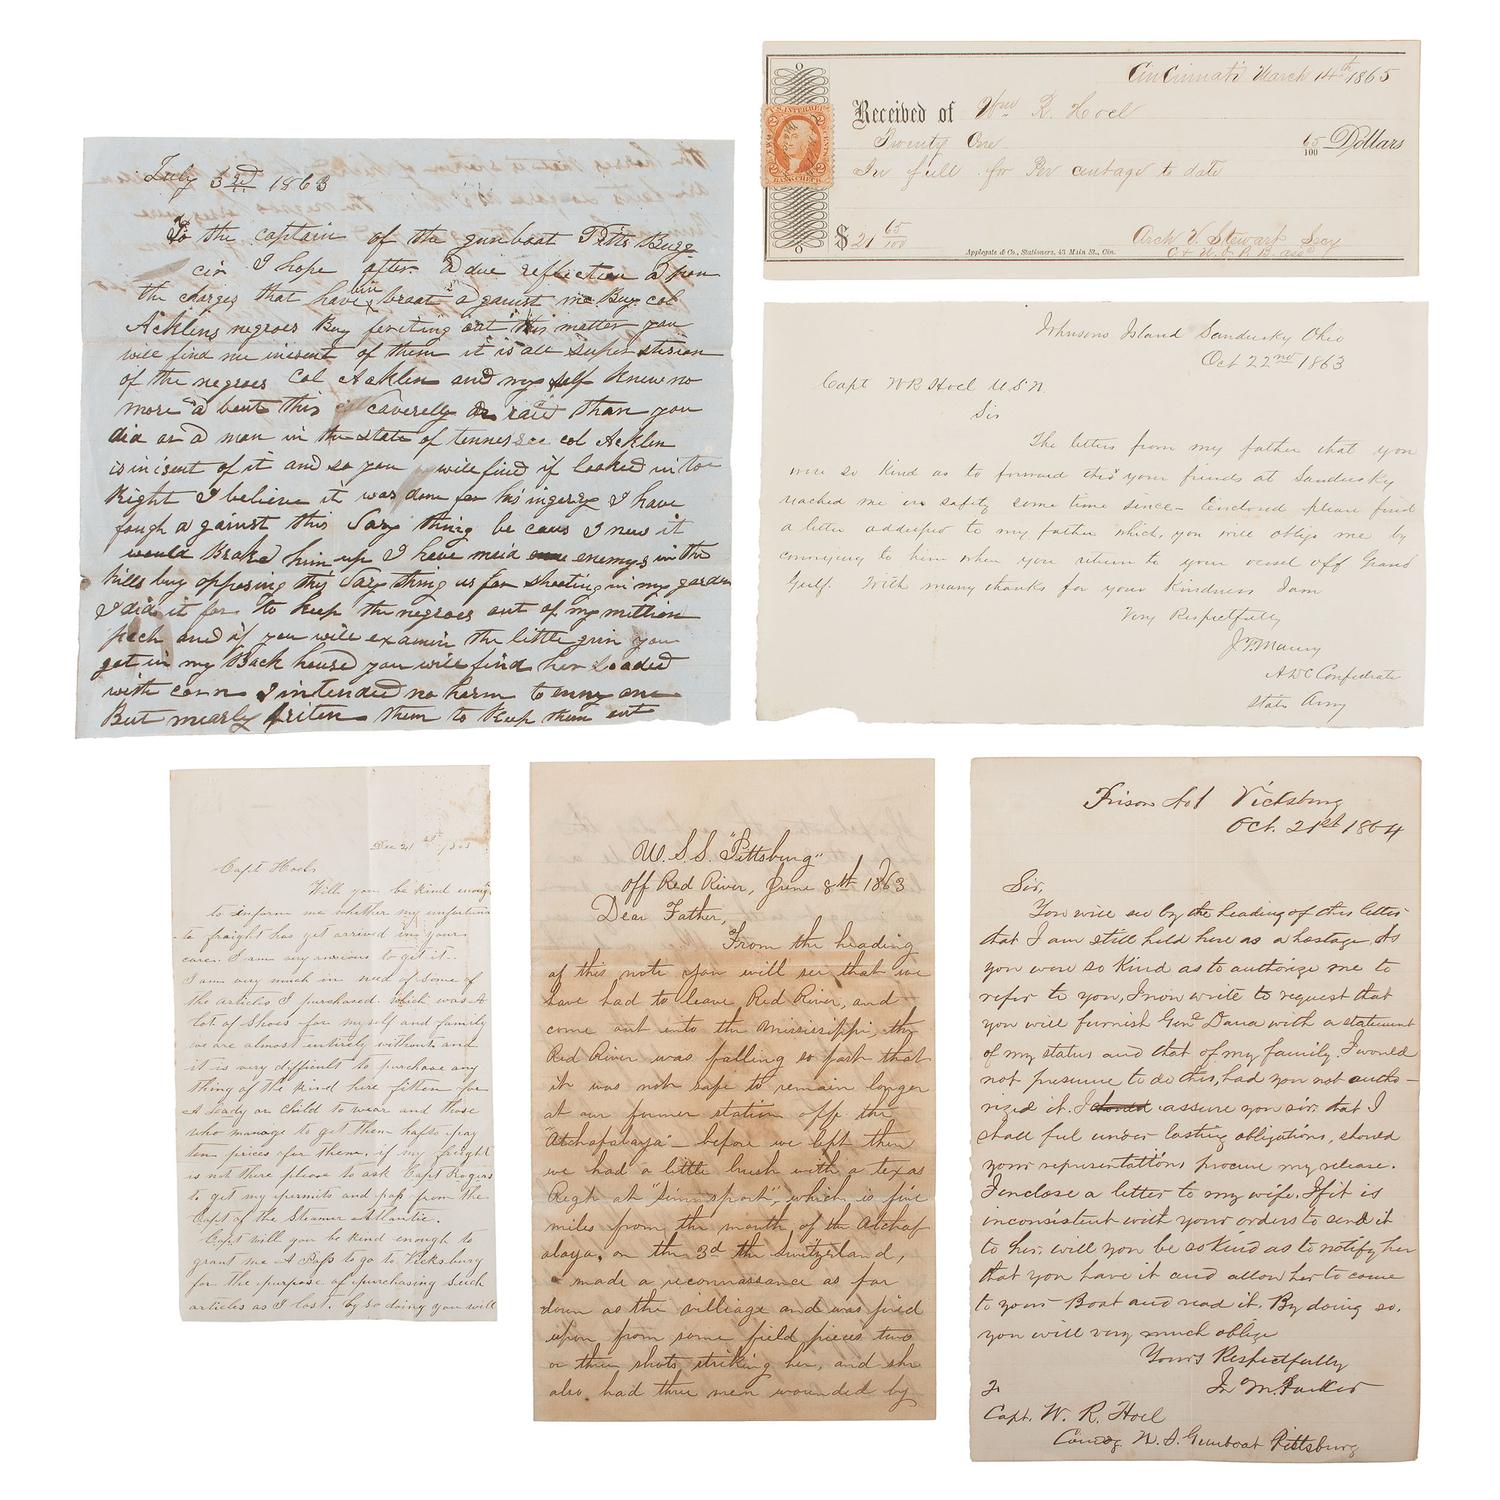 July 3rd 1863
To the captain of the gunboat Pitts Burg
cir I hope after a due reflection a pon
the charges that have bin braat against me Buy col
Acklins negroes Buy feriting out this matter you
will find me inisent of them it is all super stision
of the negroes Col Acklen and my self knew no
more a bout this caverelly raid than you
did or a man in the state of tennessee col Acklen
is inisent of it and so you will find if looked in to
Right I believe it was done for his ingery I have
fough a gainst this Sary thing be caus I new it
would Brake him up I have maid enemys in the
hills buy opposing this Sary thing as for shooting in my garden
I did it for to keep the negroes out of my million
pach and if you will examin the little gun you
got in my Back house you will find her Loaded
with corn I intended no harm to enny one
But mearly friten them to Keep them out
Cincinnati March 14th 1865
Received of Wm R. Hoel
Twenty One 65/100 Dollars
In full for Per centage to date
$21 65/100
Arch V. Stewart Secy
Applegate & Co., Stationers, 43 Main St., Cin.
U.S. INTER. REV.
BANK CHECK
Johnsons Island Sandusky Ohio
Oct 22nd 1863
Capt W R Hoel U.S.N.
Sir
The letters from my father that you
were so kind as to forward thro' your friends at Sandusky
reached me in safety some time since - Enclosed please find
a letter addressed to my father which, you will oblige me by
conveying to him when you return to your vessel off Grand
Gulf. With many thanks for your kindness I am
Very Respectfully
J F Maury
A D C Confederate
State Army
Dec 21
Capt Hoels
Will you be kind enough
to inform me whether my unfortuna
te fraight has yet arrived in yours
care. I am very anxious to get it.
I am very much in need of some of
the articles I purchased. which was A
lot of Shoes for myself and family
we are almost entirely without. and
it is very difficult to purchase any
thing of the kind here fitten for
A Lady or Child to wear and those
who manage to get them hafto pay
ten prices for them. if my freight
is not there please to ask Capt Rogers
to get my permits and pass from the
Capt of the Steamer Atlantic.
Capt will you be kind enough to
grant me A Pass to go to Vicksburg
for the purpose of purchasing such
articles as I lost. by so doing you will
U.S.S. "Pittsburg"
off Red River, June 8th 1863
Dear Father,
From the heading
of this note you will see that we
have had to leave Red River, and
come out into the Mississippi, the
Red River was falling so fast that
it was not safe to remain longer
at our former station off the
"Atchafalaya" - before we left then
we had a little brush with a Texas
Regt at "Simmsport", which is five
miles from the mouth of the Atchaf
alaya, on the 3d the Switzerland,
made a reconnaissance as far
down as the villiage and was fired
upon from some field pieces two
or three shots, striking her, and she
also had three men wounded by
Prison No 1 Vicksburg
Oct. 21st 1864
Sir,
You will see by the heading of this letter
that I am still held here as a hostage. As
you were so kind as to authorize me to
refer to you, I now write to request that
you will furnish Genl Dana with a statement
of my status and that of my family. I would
not presume to do this, had you not autho-
rized it. I assure you sir, that I
shall feel under lasting obligations, should
your representations procure my release.
I enclose a letter to my wife. If it is
inconsistent with your orders to send it
to her, will you be so kind as to notify her
that you have it and allow her to come
to your Boat and read it. By doing so,
you will very much oblige
Yours Respectfully
Jn M. Parker
To
Capt. W. R. Hoel
Comdg. U. S. Gunboat Pittsburg